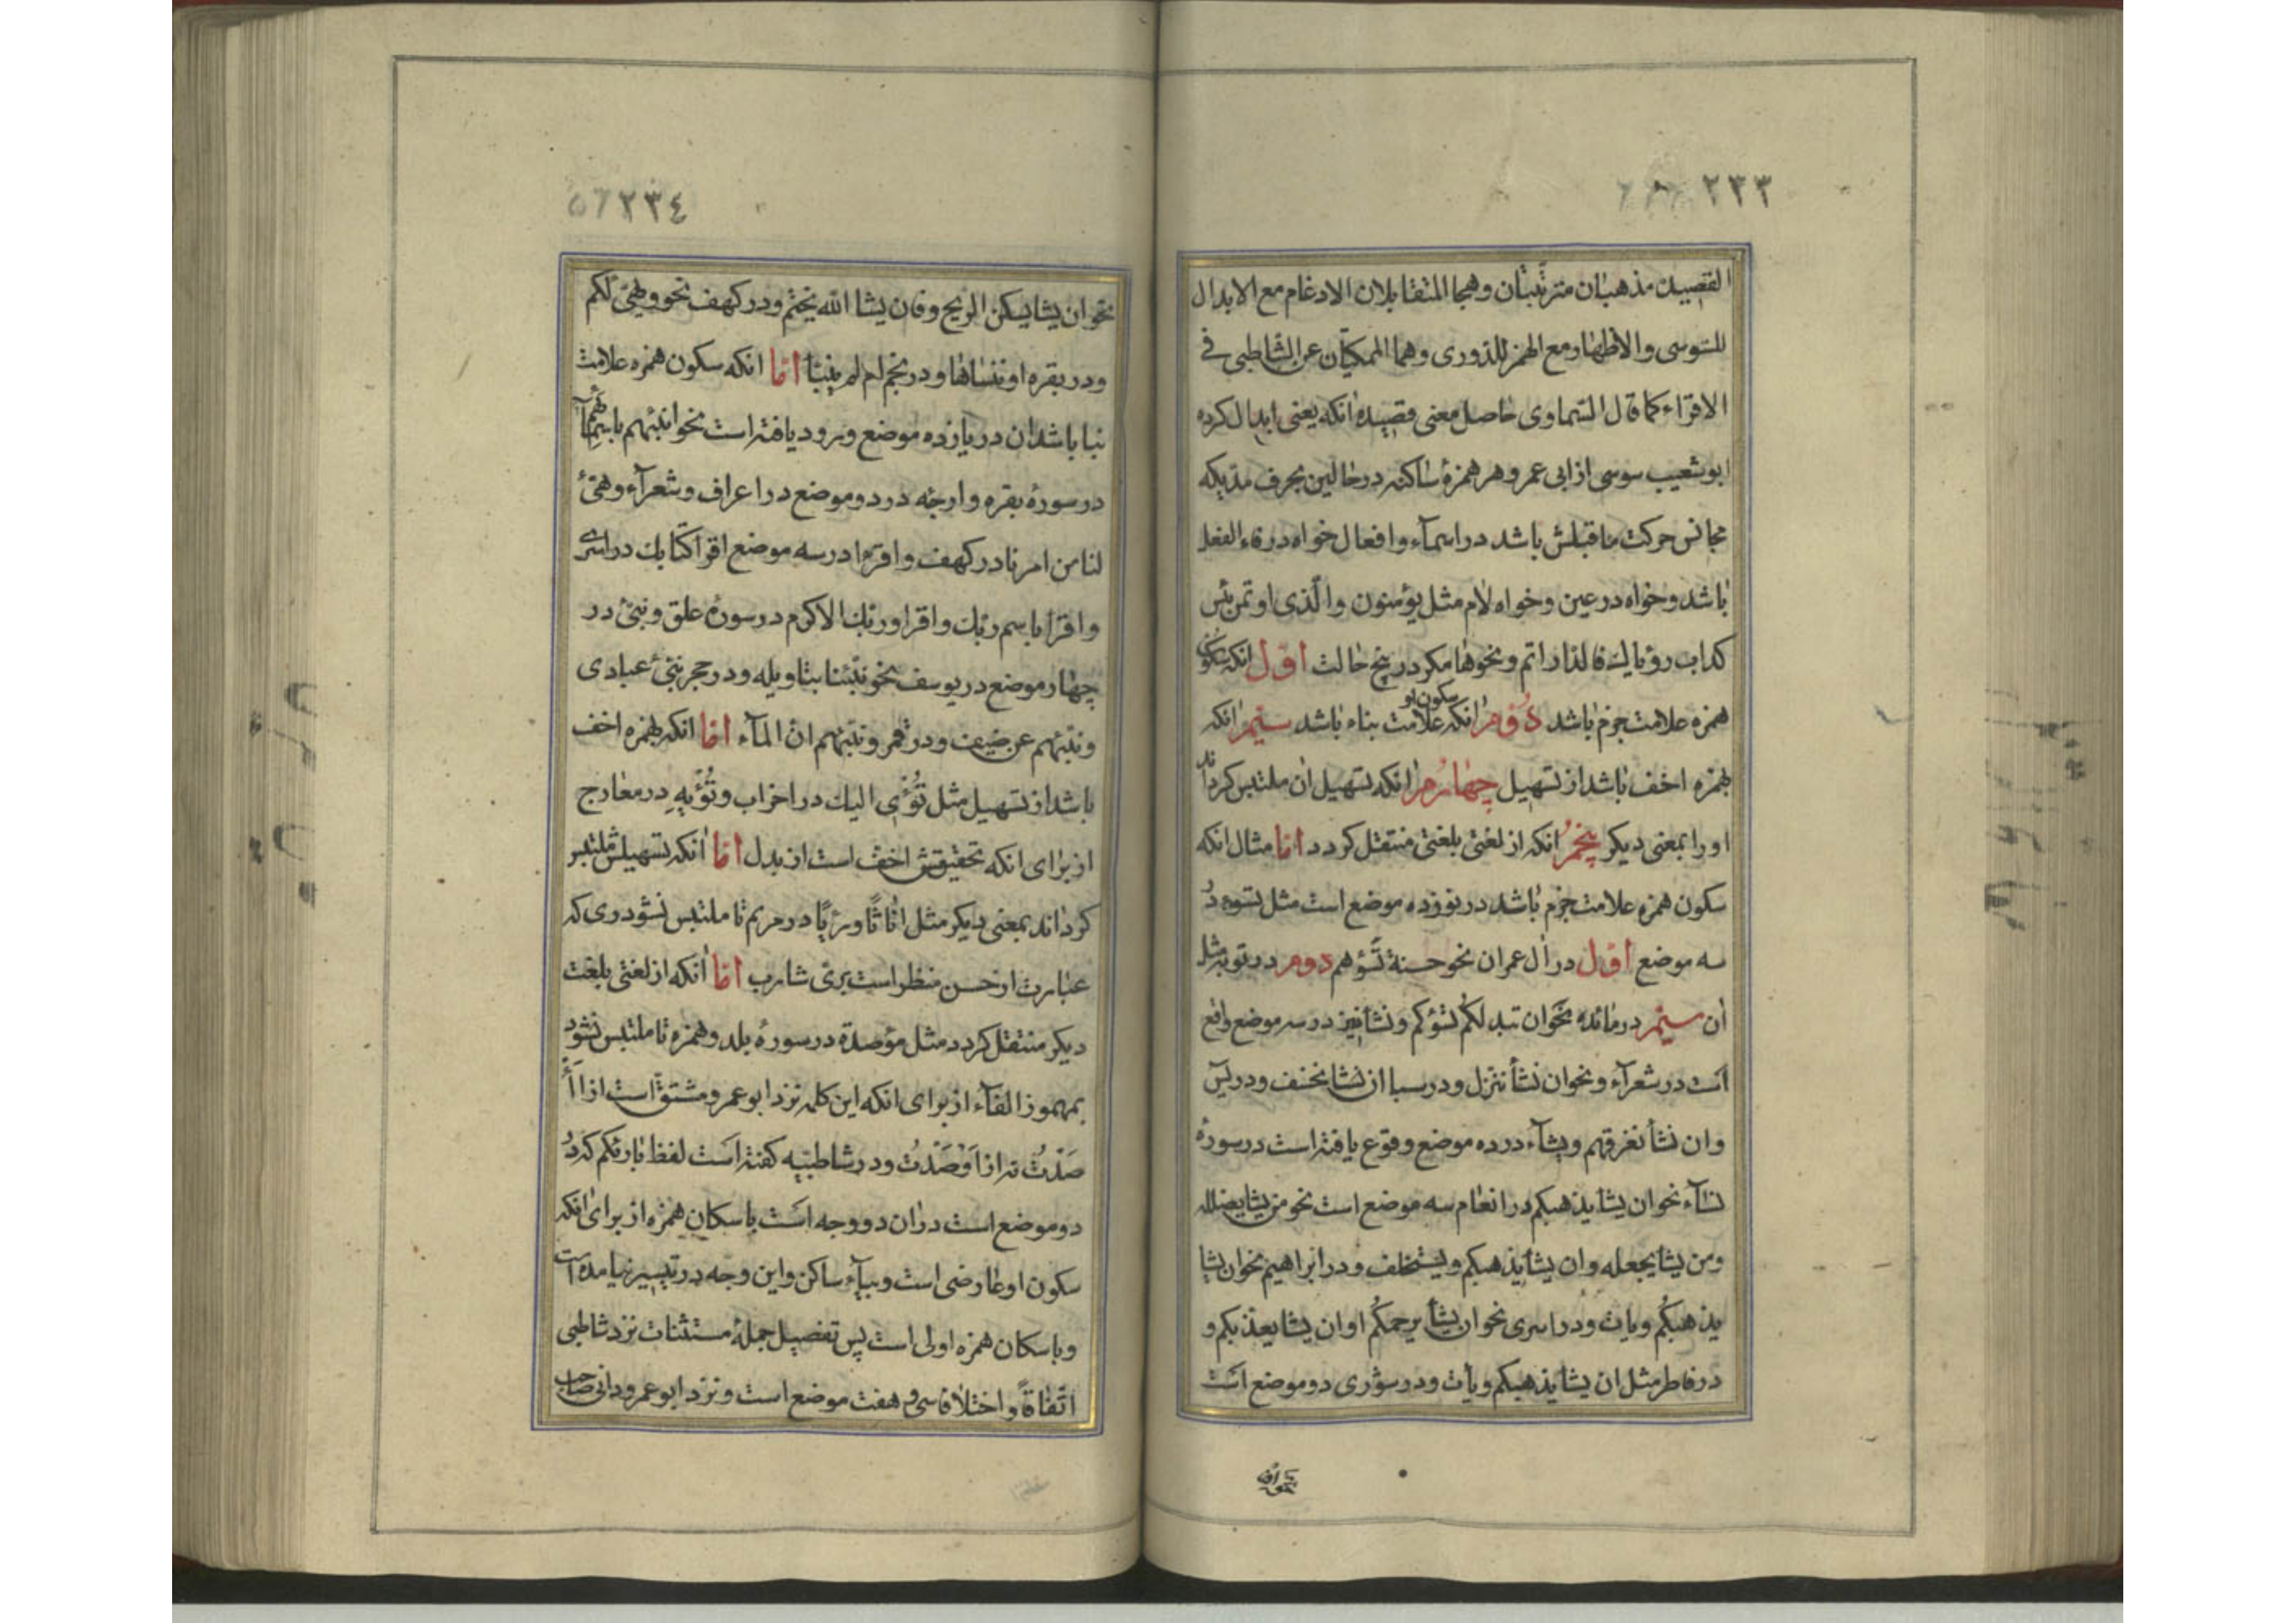 ٢٣٣
القصیدة مذهبان مترتبان وهما المتقابلان الادغام مع الابدال
للسوسی والاظهار مع الهمز للدوری وهما المحکیان عن الشاطبی فی
الاقراء کما قال السخاوی حاصل معنی قصیده انکه یعنی ابدال کرده
ابو شعیب سوسی از ابی عمرو هر همزهٔ ساکنه در حالین بحرف مدیکه
مجانس حرکت ماقبلش باشد در اسمآء و افعال خواه در فاء الفعل
باشد و خواه در عین و خواه لام مثل یؤمنون والّذی اوتمن بئس
کداب رؤیا لک فادّاراتم و نحوها مکر در پنج حالت اوّل انکه سکون
همزه علامت جزم باشد دوّم انکه سکون او علامت بناء باشد سیّم انکه
بهمزه اخف باشد از تسهیل چهارم انکه تسهیل ان ملتبس کرداند
اورا بمعنی دیکر پنجم انکه از لغتی بلغتی منتقل کردد امّا مثال انکه
سکون همزه علامت جزم باشد در نوزده موضع است مثل تسوء در
سه موضع اوّل در ال عمران نحو حسنة تسؤهم دوم در توبه مثل
ان سیّم در مائده نحو ان تبد لکم تسؤکم و نشأ نیز در سه موضع واقع
است در شعرآء و نحو ان نشأ ننزل و در سبا ان نشا نخسف و در یس
وان نشأ نغرقهم و یشآء در ده موضع وقوع یافته است در سورهٔ
نسآء نحو ان یشا یذهبکم در انعام سه موضع است نحو من یشا یضلله
ومن یشا یجعله وان یشا یذهبکم و یستخلف و در ابراهیم نحو ان یشا
یذهبکم ویات و در اسری نحو ان یشأ یرحمکم او ان یشا یعذبکم و
در فاطر مثل ان یشا یذهبکم ویأت و در شوری دو موضع است
نحو ان
٢٣٤
نحو ان یشا یسکن الریح و فان یشا الله یختم و در کهف نحو و یهیئ لکم
و در بقره او ننساها و در نجم ام لم ینبا امّا انکه سکون همزه علامت
بنا باشد ان در یازده موضع ورود یافته است نحو انبئهم باسمآئهم
در سورهٔ بقره و ارجئه در دو موضع در اعراف و شعرآء و هیّئ
لنا من امرنا در کهف و اقرا در سه موضع اقرا کتابک در اسری
و اقرا باسم ربک و اقرا وربک الاکرم در سورهٔ علق و نبّئ در
چهار موضع در یوسف نحو نبّئنا بتاویله و در حجر نبّئ عبادی
ونبّئهم عن ضیف و در قمر ونبّئهم ان المآء امّا انکه بهمزه اخف
باشد از تسهیل مثل تُؤْی الیک در احزاب و تُؤْیهِ در معارج
از برای انکه تحقیقش اخف است از بدل امّا انکه تسهیلش ملتبس
کرداند بمعنی دیکر مثل اثاثًا ورئیًا در مریم تا ملتبس نشود ری که
عبارت از حسن منظر است بری شارب امّا انکه از لغتی بلغت
دیکر منتقل کردد مثل مؤصدة در سورهٔ بلد و همزه تا ملتبس نشود
بمهموز الفآء از برای انکه این کلمه نزد ابو عمرو مشتق است از اأ
صَدْتُ نه از اَوْصَدْتُ و در شاطبیّه کفته است لفظ بارئکم که در
دو موضع است در ان دو وجه است باسکان همزه از برای انکه
سکون او عارضی است و بیآء ساکن و این وجه در تیسیر نیامده است
و باسکان همزه اولی است پس تفصیل جملهٔ مستثنات نزد شاطبی
اتّفاقاً و اختلافا سی و هفت موضع است و نزد ابو عمرو دانی صاحب